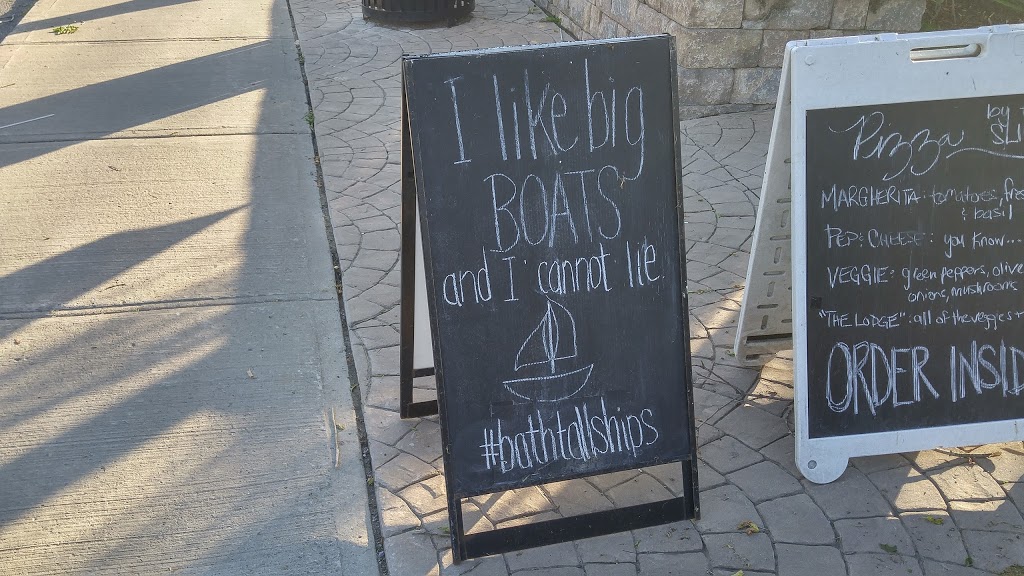 I like big
BOATS
and I cannot lie
#bathtallships
Pizza by
MARGHERITA: tomatoes,
& basil
PEP & CHEESE: you know...
VEGGIE: green peppers,
onions, mushrooms
"THE LODGE": all of the veggies +
ORDER